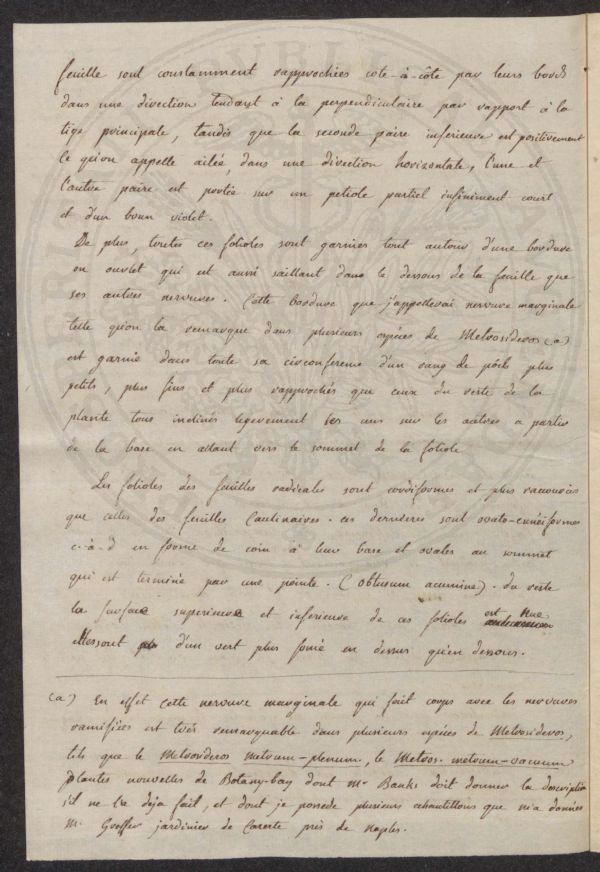 feuille sont constamment rapprochées cote-à-côte par leurs bords
dans une direction tendant à la perpendiculaire par rapport à la
tige principale, tandis que la seconde paire inferieure est positivement
ce qu'on appelle ailée, dans une direction horizontale, l'une et
l'autre paire est portée sur un petiole partiel infiniment court
et d'un brun violet.
De plus, toutes ces folioles sont garnies tout autour d'une bordure
en ourlet qui est aussi saillant dans le dessous de la feuille que
ses autres nervures. Cette bordure que j'appellerai nervure marginale
telle qu'on la remarque dans plusieurs espéces de Metrosideros (a)
est garnie dans toute sa circonference d'un rang de poils plus
petits, plus fins et plus rapprochés que ceux du reste de la
plante tous inclinés legerement les uns sur les autres a partir
de la base en allant vers le sommet de la foliole
Les folioles des feuilles radicales sont cordiformes et plus racourcies
que celles des feuilles Caulinaires. ces dernieres sont ovato-cunéiformes
c.-à-d en forme de coin à leur base et ovales au sommet
qui est terminé par une pointe. (obtusum acumine). du reste
la surface superieure et inferieure de ces folioles est nue
elles sont d'un vert plus foncé en dessus qu'en dessous.
(a) En effet cette nervure marginale qui fait corps avec les nervures
ramifiées est trés remarquable dans plusieurs espéces de Metrosideros,
tels que le Metrosideros metrum-plenum, le Metros. metrum-vacuum
plantes nouvelles de Botany-bay dont Mr Banks doit donner la description
s'il ne l'a deja fait, et dont je possede plusieurs echantillons que m'a donnés
M. Greffer jardinier de Caserte près de Naples.